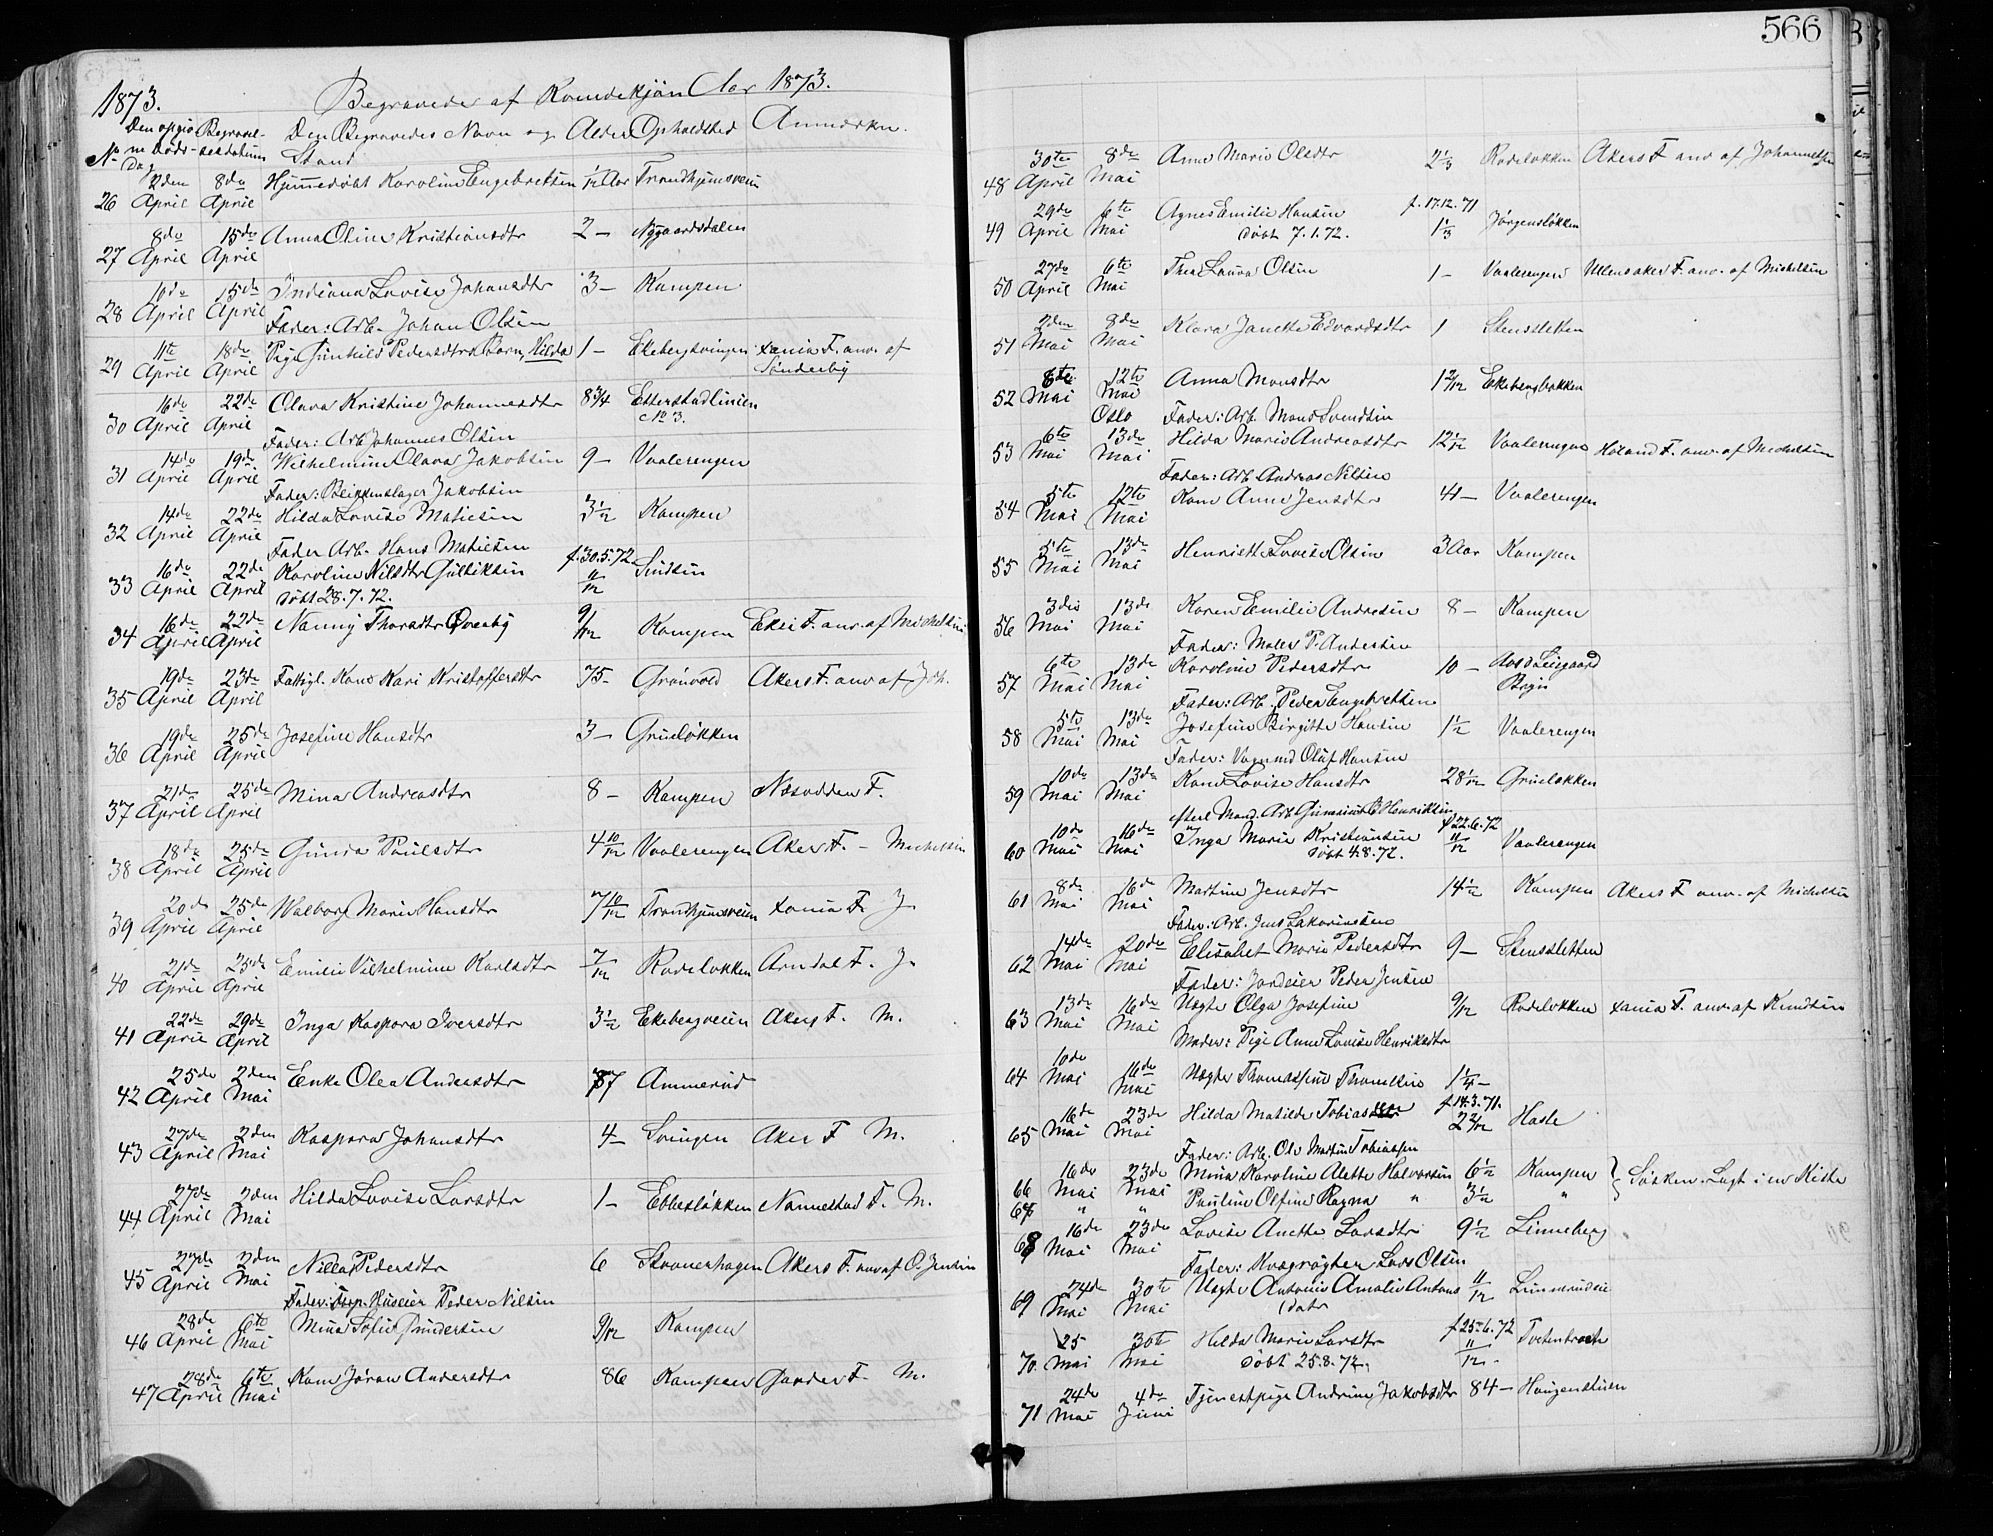 566
1873. Begravede af Kvindekjøn Aar 1873.
No Den opgivne Døds-Dag Begravelsesdatum Den Begravedes Navn og Stand Alder Opholdsted Anmærkn.
26 2den April 8de April Hjemmedøbt Karoline Engebretsen 1/12 Aar Trondhjemsveien
27 8de April 15de April Anna Oline Kristiansdtr 2 — Nygaardsdalen
28 10de April 15de April Indiana Lovise Johansdtr 3 — Kampen
Fader: Arb. Johan Olsen
29 11te April 18de April Pige Gunhild Pedersdtrs Barn, Hilda 1 — Ekebergsvingen Xania F. anv. af Sønderby
30 16de April 22de April Olava Kristine Johannesdtr 8 3/4 Etterstadlinien No 3.
Fader: Arb. Johannes Olsen
31 14de April 19de April Wilhelmine Olava Jakobsen 9 — Vaalerengen
Fader: Blikkenslager Jakobsen
32 14de April 22de April Hilda Lovise Matiesen 3 1/2 Kampen
Fader Arb. Hans Matiesen
33 16de April 22de April Karoline Nilsdtr Gulliksen f. 30.5.72. 11/12 Sinsen
døbt 28.7.72.
34 16de April 22de April Nanny Thorsdtr Øveby 9/12 Kampen F. anv. af Michelsen
35 19de April 23de April Fattigl. Kone Kari Kristoffersdtr 75 — Grønvold Akers F. anv af Joh.
36 19de April 25de April Josefine Hansdtr 3 — Grueløkken
37 21de April 25de April Mina Andreasdtr 8 — Kampen Næsodden F.
38 18de April 25de April Gunda Paulsdtr 4 10/12 Vaalerengen Akers F. — Michelsen
39 20de April 25de April Walborg Marie Hansdtr 7 10/12 Trondhjemsveien Xania F. J.
40 21de April 25de April Emilie Vilhelmine Karlsdtr 7/12 Rodeløkken Arndal F. J.
41 22de April 29de April Inga Kaspara Iversdtr 3 1/2 Ekebergveien Akers F. M.
42 25de April 2den Mai Enke Olea Andersdtr 87 Ammerud
43 27de April 2den Mai Kaspara Johansdtr 4 — Svingen Aker F M.
44 27de April 2den Mai Hilda Lovise Larsdtr 1 — Ebbesløkken Nannestad F. M.
45 27de April 2den Mai Nilla Pedersdtr 6 Stovnerhagen Akers F. anv af O. Jensen
Fader: Huseier Peder Nilsen
46 28de April 6te Mai Mina Sofie Gundersen 9/12 Kampen
47 28de April 6te Mai Kone Jøran Andersdtr 86 Kampen Garder F. M.
48 30te April 8de Mai Anne Marie Olsdtr 2 1/3 Rodeløkken Akers F anv af Johannesen
49 29de April 6te Mai Agnes Emilie Hansen f. 17.12.71 1 1/3 Jørgensløkken
døbt 7.1.72.
50 27de April 6te Mai Thea Laura Olsen 1 — Vaalerengen Ullensaker F. anv. af Michelsen
51 2den Mai 8de Mai Klara Janette Edvardsdtr 1 Stensletten
52 6te Mai 12te Mai Oslo Anna Monsdtr 1 2/12 Ekebergbakken
Fader: Arb. Mons Svendsen
53 6te Mai 13de Mai Hilda Marie Andreasdtr 12 1/12 Vaalerengen Høland F. anv. af Michelsen
Fader: Arb. Andreas Nilsen
54 5te Mai 12te Mai Kone Anne Jensdtr 41 — Vaalerengen
55 5te Mai 13de Mai Henriette Lovise Olsen 3 Aar Kampen
56 3die Mai 13de Mai Karen Emilie Andersen 8 — Kampen
Fader: Maler P. Andersen
57 6te Mai 13de Mai Karoline Pedersdtr 10 —
Fader: Arb. Peder Engebretsen
58 5te Mai 13de Mai Josefine Birgitte Hansen 1 1/2 Vaalerengen
Fader: Vognmd Oluf Hansen
59 10de Mai 13de Mai Kone Lovise Hansdtr 28 1/12 Grueløkken
efterl. Mand. Arb.
60 10de Mai 16de Mai Inga Marie Kristiansen f 22.6.72 11/12 Vaalerengen
døbt 4.8.72.
61 8de Mai 16de Mai Martine Jensdtr 14 1/2 Kampen Akers F anv. af Michelsen
Fader: Arb. Jens Sakariassen
62 14de Mai 20de Mai Elisabet Marie Pedersdtr 9 — Stensletten
Fader: Jordeier Peder Jensen
63 13de Mai 16de Mai Uægte Olga Josefine 9/12 Rodeløkken Xania F. anv. af Knudsen
Moder: Pige Anne Lovise Henriksdtr
64 10de Mai 16de Mai Uægte Thomassine Thomesen 1 1/4 —
65 16de Mai 23de Mai Hilda Matilde Tobiassen f 14.3.71. 2 2/12 Hasle
Fader: Arb. Ole Martin Tobiassen
66 16de Mai 23de Mai Mina Karoline Alette Halvorsen 6 1/2 Kampen } Søsken. Lagt i en Kiste
67 " " Pauline Olfine Ragna " 3 1/2 "
68 16de Mai 23de Mai Lovise Anette Larsdtr 9 1/2 Linneberg
Fader: Kvægrøgter Lars Olsen
69 24de Mai 30te Mai Uægte Antonie Amalie Antonsdatr 11/12
70 25 Mai 30te Mai Hilda Marie Larsdtr f 25.6.72 11/12 —
døbt 25.8.72.
71 24de Mai 4de Juni Tjenestpige Andrine Jakobsdtr 84 — Haugenstuen